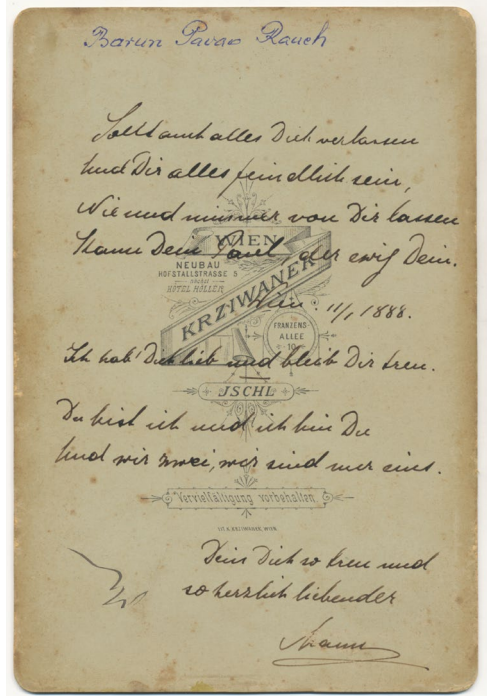 Barun Pavao Rauch
Sollt auch alles Dich verlassen
Und Dir alles feindlich sein,
Nie und nimmer von Dir lassen
Kann Dein Paul, der ewig Dein.
WIEN
NEUBAU
HOFSTALLSTRASSE 5
HOTEL HÖLLER
KRZIWANEK
Wien. 11/1 1888.
FRANZENS-
ALLEE
10
Ich hab' Dich lieb und bleib Dir treu.
JSCHL
Du bist ich und ich bin Du
Und wir zwei, wir sind nur eins.
Vervielfältigung vorbehalten
LIT. K. KRZIWANEK, WIEN.
Dein Dich so treu und
so herzlich liebender
Mann